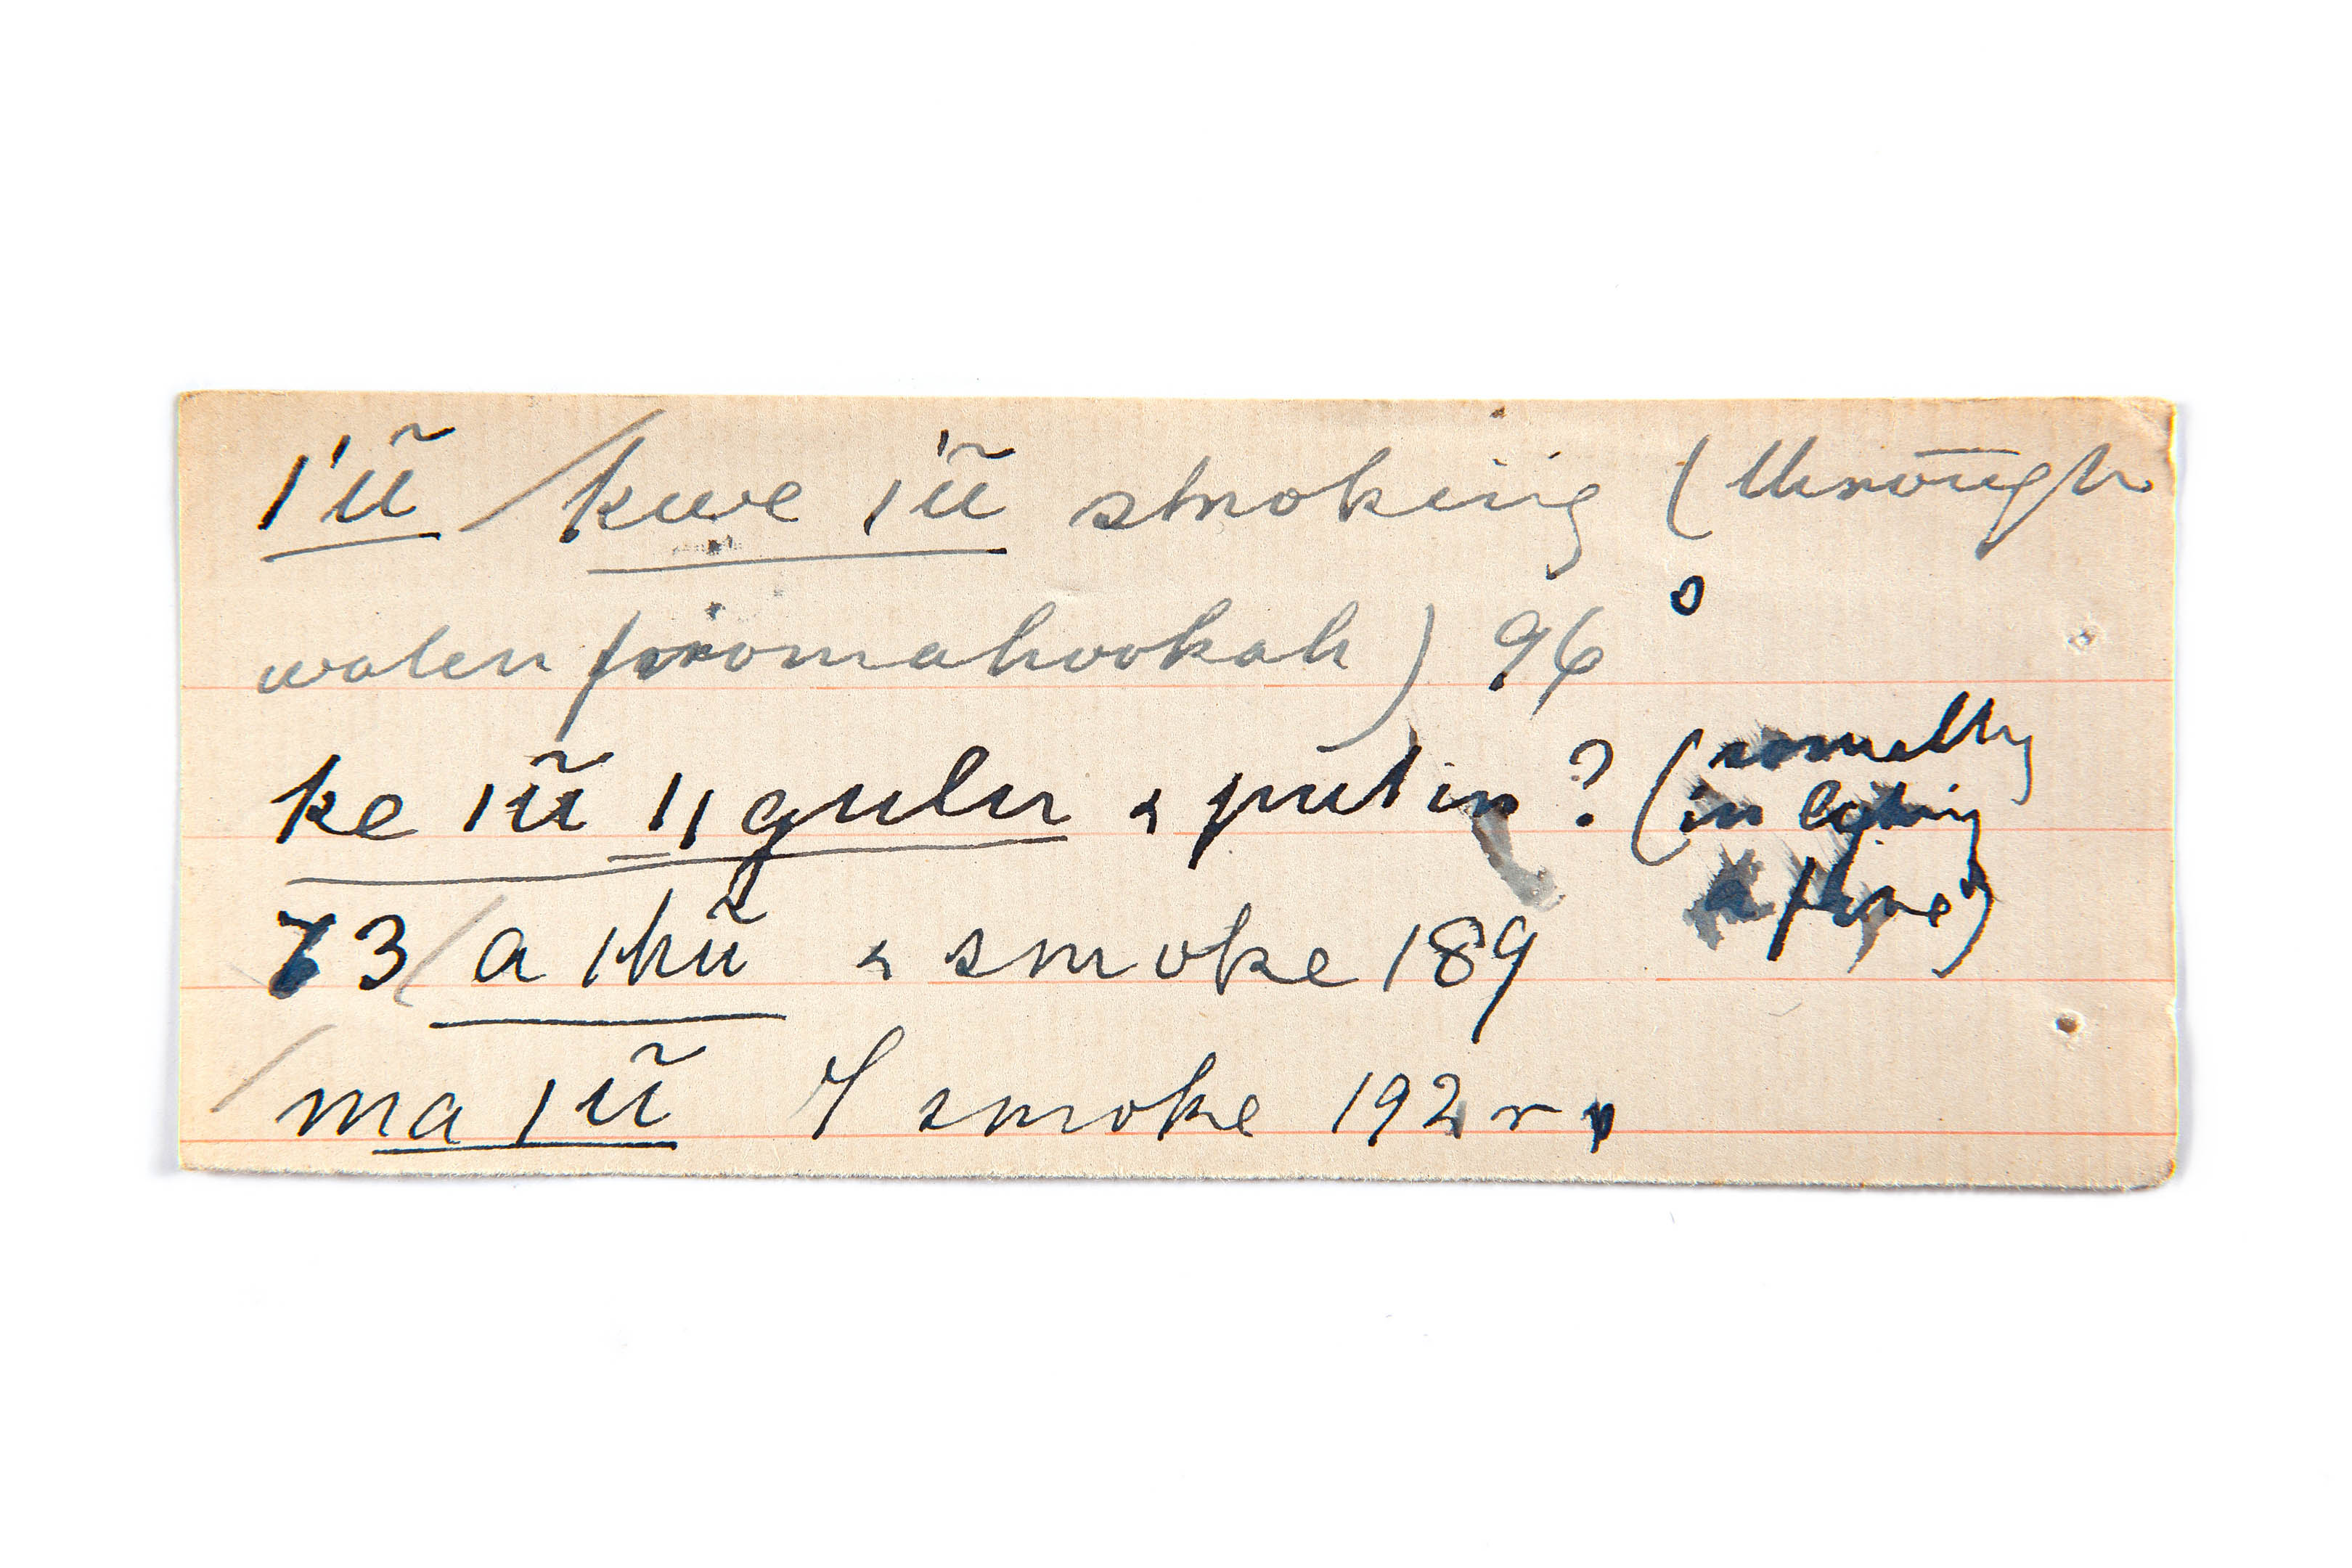 ǀ'ũ / kwe ǀ'ũ smoking (through
water from a hookah) 96
ke ǀũ ǁgulu , put in ? (somethg
in lighting
a fire)
73 / a ǀhũ , smoke 189
/ ma ǀũ I smoke 192 r.